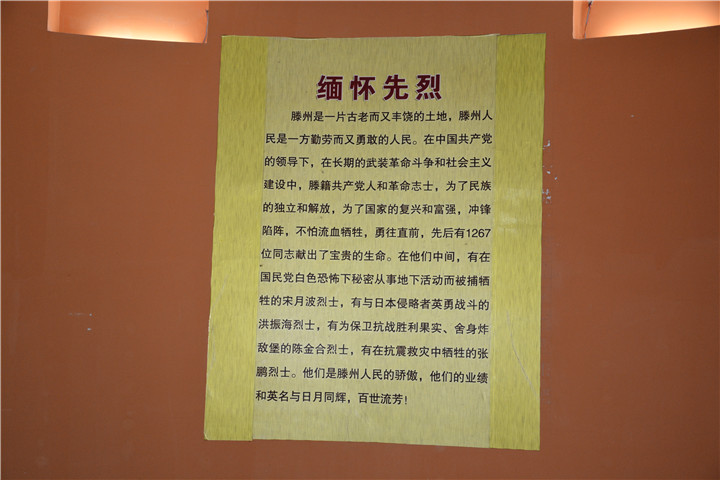 缅怀先烈
滕州是一片古老而又丰饶的土地，滕州人
民是一方勤劳而又勇敢的人民。在中国共产党
的领导下，在长期的武装革命斗争和社会主义
建设中，滕籍共产党人和革命志士，为了民族
的独立和解放，为了国家的复兴和富强，冲锋
陷阵，不怕流血牺牲，勇往直前，先后有1267
位同志献出了宝贵的生命。在他们中间，有在
国民党白色恐怖下秘密从事地下活动而被捕牺
牲的宋月波烈士，有与日本侵略者英勇战斗的
洪振海烈士，有为保卫抗战胜利果实、舍身炸
敌堡的陈金合烈士，有在抗震救灾中牺牲的张
鹏烈士。他们是滕州人民的骄傲，他们的业绩
和英名与日月同辉，百世流芳！